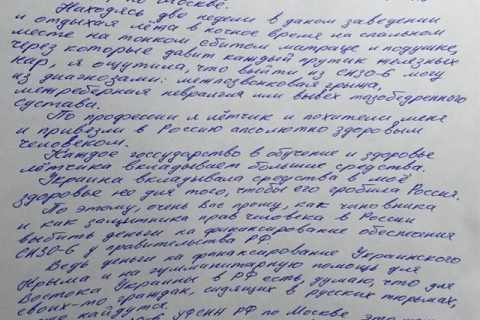 по Москве.
Находясь две недели в даном заведении
и отдыхая лёжа в ночное время на спальном
месте на тонком сбитом матраце и подушке,
через которые давит каждый прутик железных
нар, я ощутила, что выйти из СИЗО-6 могу
из диагнозами: межпозвонковая грыжа,
межреберная невралгия или вывех тазобедренного
сустава.
По профессии я лётчик и похители меня
и привезли в Россию апсолютно здоровым
человеком.
Каждое государство в обучение и здоровье
лётчика вкладывает большие средства.
Украина вкладывала средства в моё
здоровье но для того, чтобы его гробила Россия.
По этому, очень Вас прошу, как чиновника
и как защитника прав человека в России
выбить деньги на финансирование обеспечения
СИЗО-6 у правительства РФ.
Ведь деньги на финансирование Украинского
Крыма и на гумманитарную помощь для
Востока Украины в РФ есть, думаю, что для
своих-то граждан, сидящих в русских тюрьмах,
тоже найдутся.
УФСИН РФ по Москве это